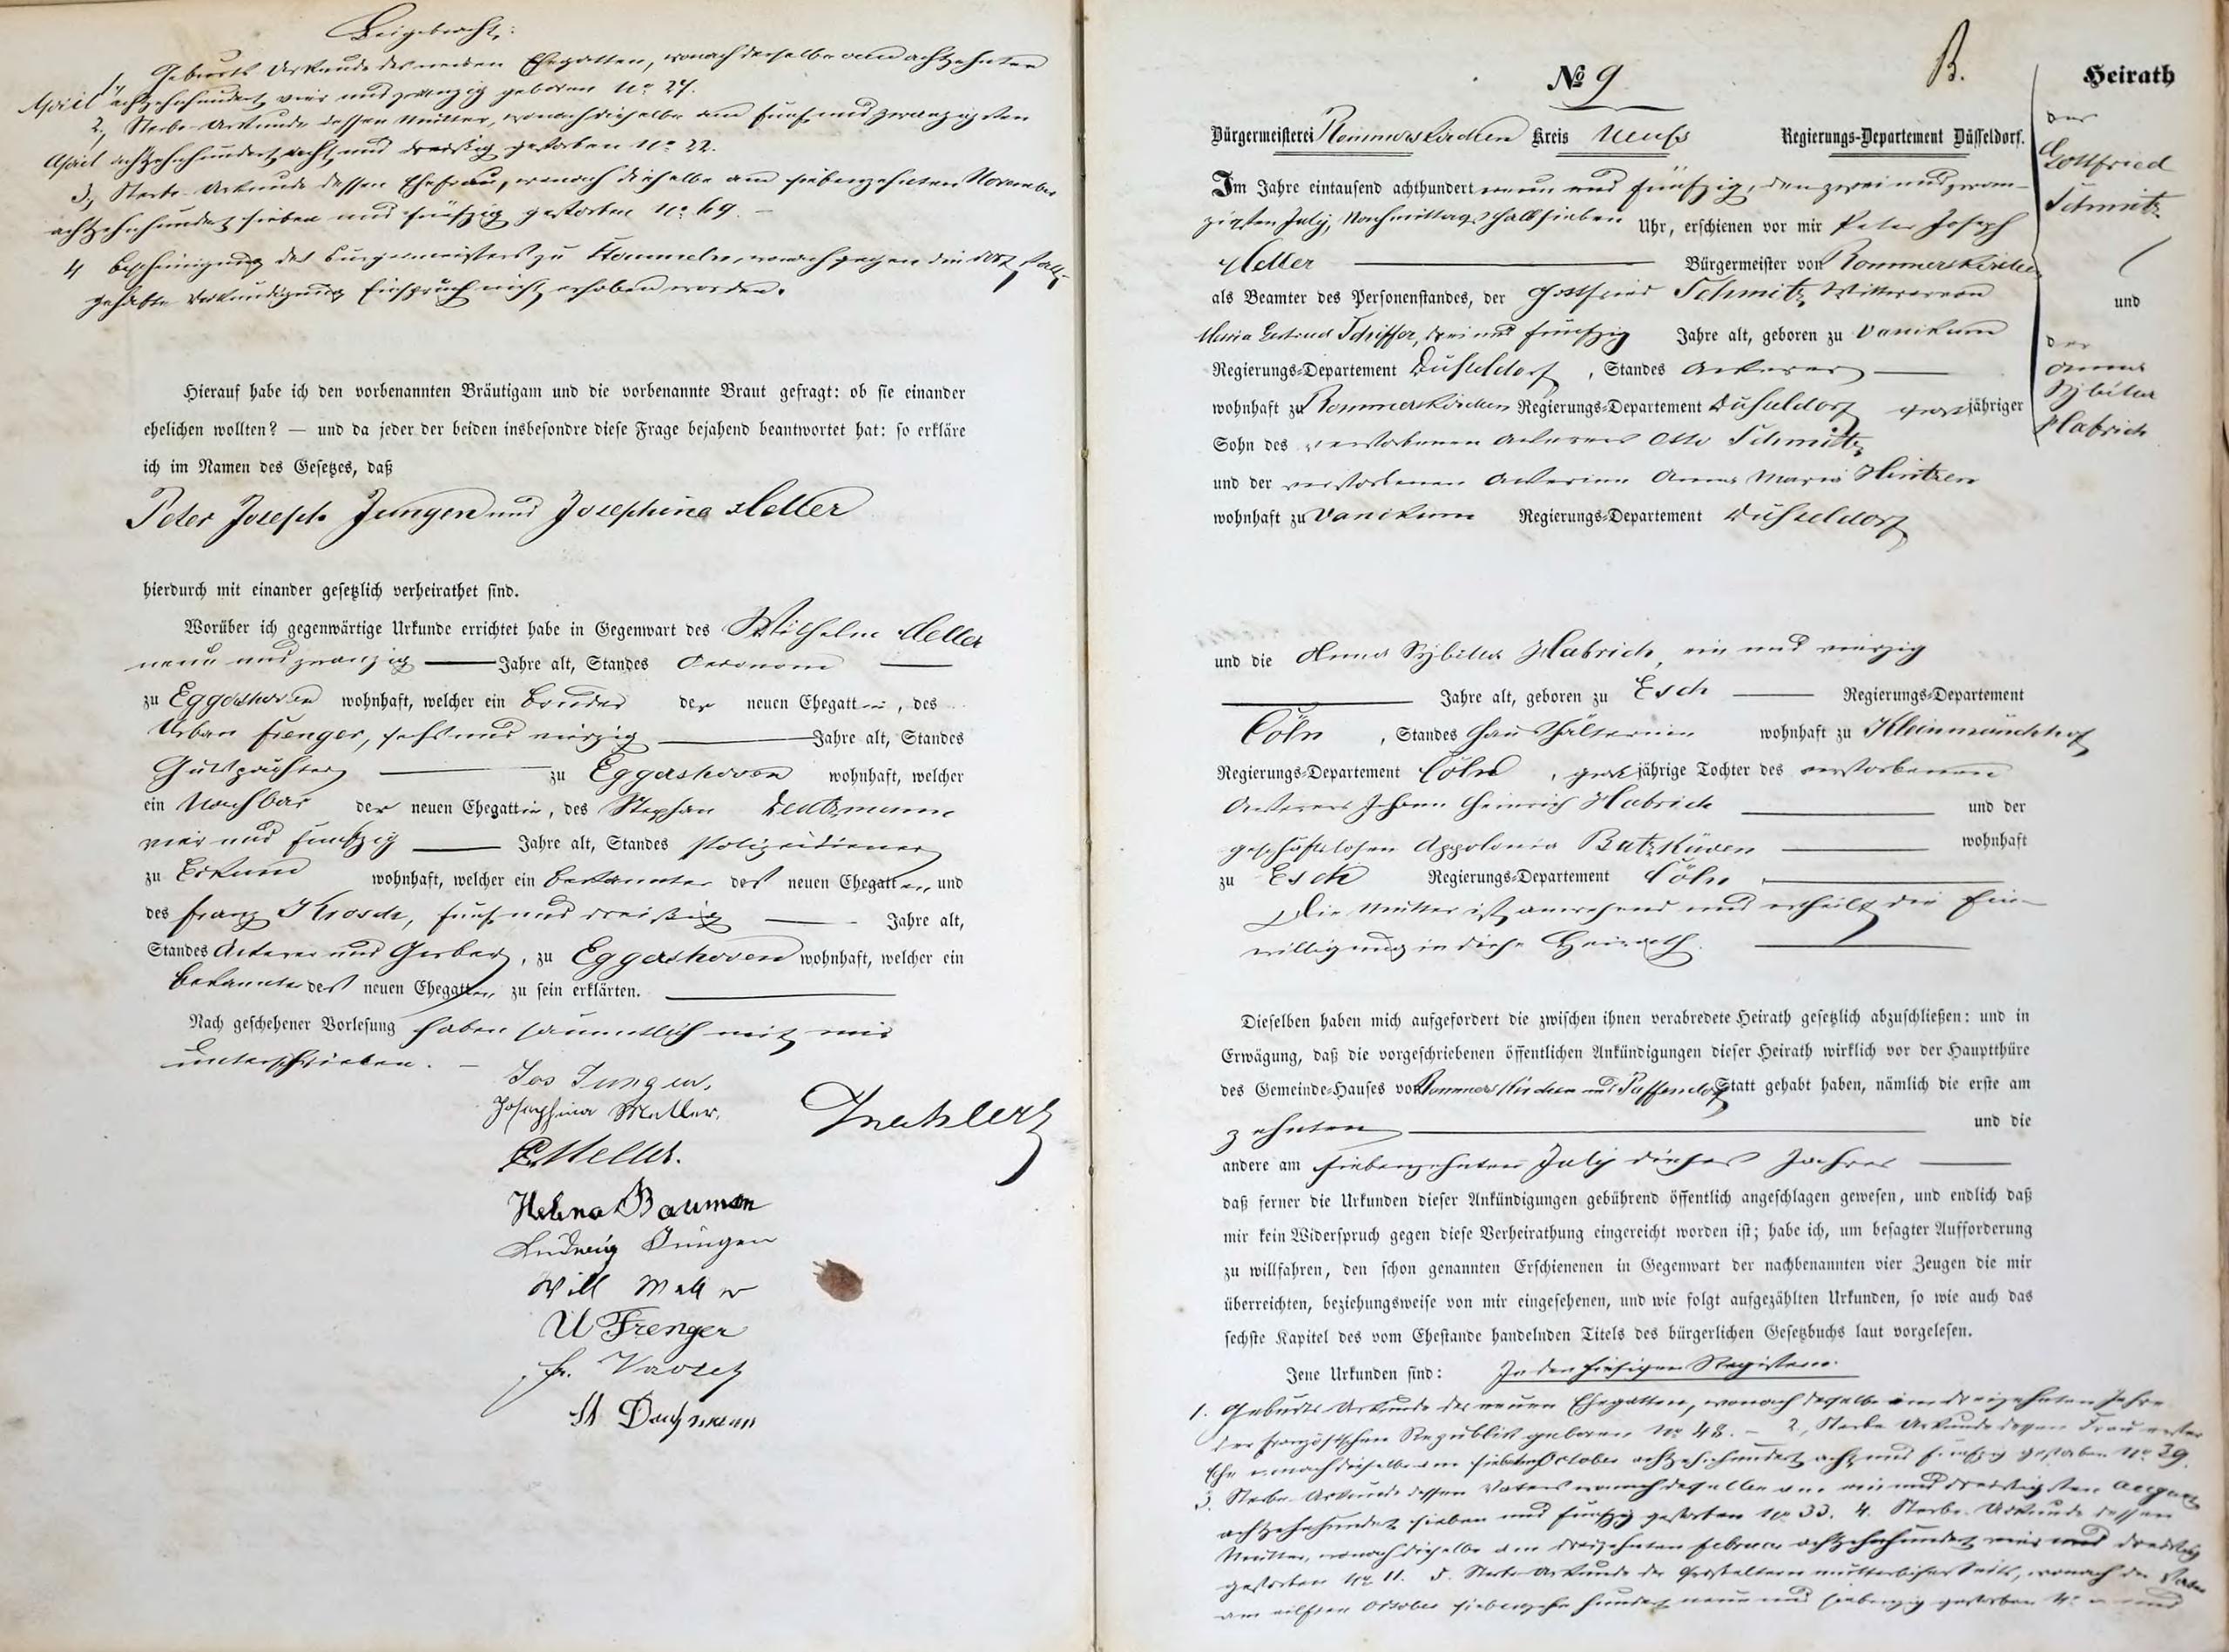 Beigebracht:
1, Geburts Urkunde des neuen Ehegatten, wonach derselbe am achtzehnten
April achtzehnhundert vier und zwanzig geboren No 27.
2, Sterbe-Urkunde dessen Mutter, wonach dieselbe am fünf und zwanzigsten
April achtzehnhundert acht und dreißig gestorben No 22.
3, Sterbe-Urkunde dessen Ehefrau, wonach dieselbe am siebenzehnten November
achtzehnhundert sieben und fünfzig gestorben No 69. –
4 Bescheinigung des Bürgermeisters zu wonach gegen die dort statt
gehabte Verkündigung Einspruch nicht erhoben worden.
Hierauf habe ich den vorbenannten Bräutigam und die vorbenannte Braut gefragt: ob sie einander
ehelichen wollten? — und da jeder der beiden insbesondre diese Frage bejahend beantwortet hat: so erkläre
ich im Namen des Gesetzes, daß
Peter Joseph Jungen und Josephina Meller
hierdurch mit einander gesetzlich verheirathet sind.
Worüber ich gegenwärtige Urkunde errichtet habe in Gegenwart des Wilhelm Meller
neun und zwanzig Jahre alt, Standes Oeconom
zu Eggershoven wohnhaft, welcher ein Bruder der neuen Ehegattin, des
Urban Frenger, sechs und vierzig Jahre alt, Standes
Gutspächter zu Eggershoven wohnhaft, welcher
ein Nachbar der neuen Ehegattin, des Stephan
vier und fünfzig Jahre alt, Standes Polizeidiener
zu Eckum wohnhaft, welcher ein Bekannter des neuen Ehegatten, und
des Franz Krosch, fünf und dreißig Jahre alt,
Standes Ackerer und Gerber, zu Eggershoven wohnhaft, welcher ein
Bekannter des neuen Ehegatten zu sein erklärten.
Nach geschehener Vorlesung haben sämmtlich mit mir
unterschrieben. –
Jos Jungen.
Josephina Meller.
P. Meller.
Helena Bauman
Ludwig Jüngen
Will Meller
U Frenger
Fr. Krosch
St
No 9
B.
Heirath
des
Gottfried
Schmitz
und
der
Anna
Sybilla
Habrich
Bürgermeisterei Rommerskirchen Kreis Neuss Regierungs-Departement Düsseldorf.
Im Jahre eintausend achthundert neun und fünfzig, den zwei und zwan-
zigsten July, Nachmittags halb sieben Uhr, erschienen vor mir Peter Joseph
Meller Bürgermeister von Rommerskirchen
als Beamter des Personenstandes, der Gottfried Schmitz, Wittwer von
Maria Gertrud Schiffer, drei und fünfzig Jahre alt, geboren zu Vanikum
Regierungs-Departement Düsseldorf, Standes Ackerer
wohnhaft zu Rommerskirchen Regierungs-Departement Düsseldorf großjähriger
Sohn des verstorbenen Ackerers Otto Schmitz
und der verstorbenen Ackerin Anna Maria Hintzen
wohnhaft zu Vanikum Regierungs-Departement Düsseldorf
und die Anna Sybilla Habrich, ein und vierzig
Jahre alt, geboren zu Esch Regierungs-Departement
Cöln, Standes Haushälterin wohnhaft zu Kleinmünchhof
Regierungs-Departement Cöln, großjährige Tochter des verstorbenen
Ackerers Johann Heinrich Habrich und der
geschäftslosen Appolonia Butzküven wohnhaft
zu Esch Regierungs-Departement Cöln,
Die Mutter ist anwesend und ertheilt die Ein-
willigung in diese Heirath.
Dieselben haben mich aufgefordert die zwischen ihnen verabredete Heirath gesetzlich abzuschließen: und in
Erwägung, daß die vorgeschriebenen öffentlichen Ankündigungen dieser Heirath wirklich vor der Hauptthüre
des Gemeinde-Hauses von Rommerskirchen und Paffendorf Statt gehabt haben, nämlich die erste am
zehnten und die
andere am siebenzehnten July dieses Jahres
daß ferner die Urkunden dieser Ankündigungen gebührend öffentlich angeschlagen gewesen, und endlich daß
mir kein Widerspruch gegen diese Verheirathung eingereicht worden ist; habe ich, um besagter Aufforderung
zu willfahren, den schon genannten Erschienenen in Gegenwart der nachbenannten vier Zeugen die mir
überreichten, beziehungsweise von mir eingesehenen, und wie folgt aufgezählten Urkunden, so wie auch das
sechste Kapitel des vom Ehestande handelnden Titels des bürgerlichen Gesetzbuchs laut vorgelesen.
Jene Urkunden sind: In den hiesigen Registern.
1. Geburts Urkunde des neuen Ehegatten, wonach derselbe im dreizehnten Jahre
der französischen Republik geboren No 48. – 2, Sterbe Urkunde dessen Frau erster
Ehe wonach dieselbe am sieben October achtzehnhundert acht und fünfzig gestorben No 39.
3. Sterbe-Urkunde dessen Vaters wonach derselbe am ein und dreißigsten August
achtzehnhundert sieben und fünfzig gestorben No 33. 4. Sterbe-Urkunde dessen
Mutter, wonach dieselbe am dreizehnten Februar achtzehnhundert vier und dreißig
gestorben No 11. 5. Sterbe-Urkunde der Großeltern mütterlicher Seits, wonach der Vater
am eilften October siebenzehn hundert neun und siebenzig gestorben No und